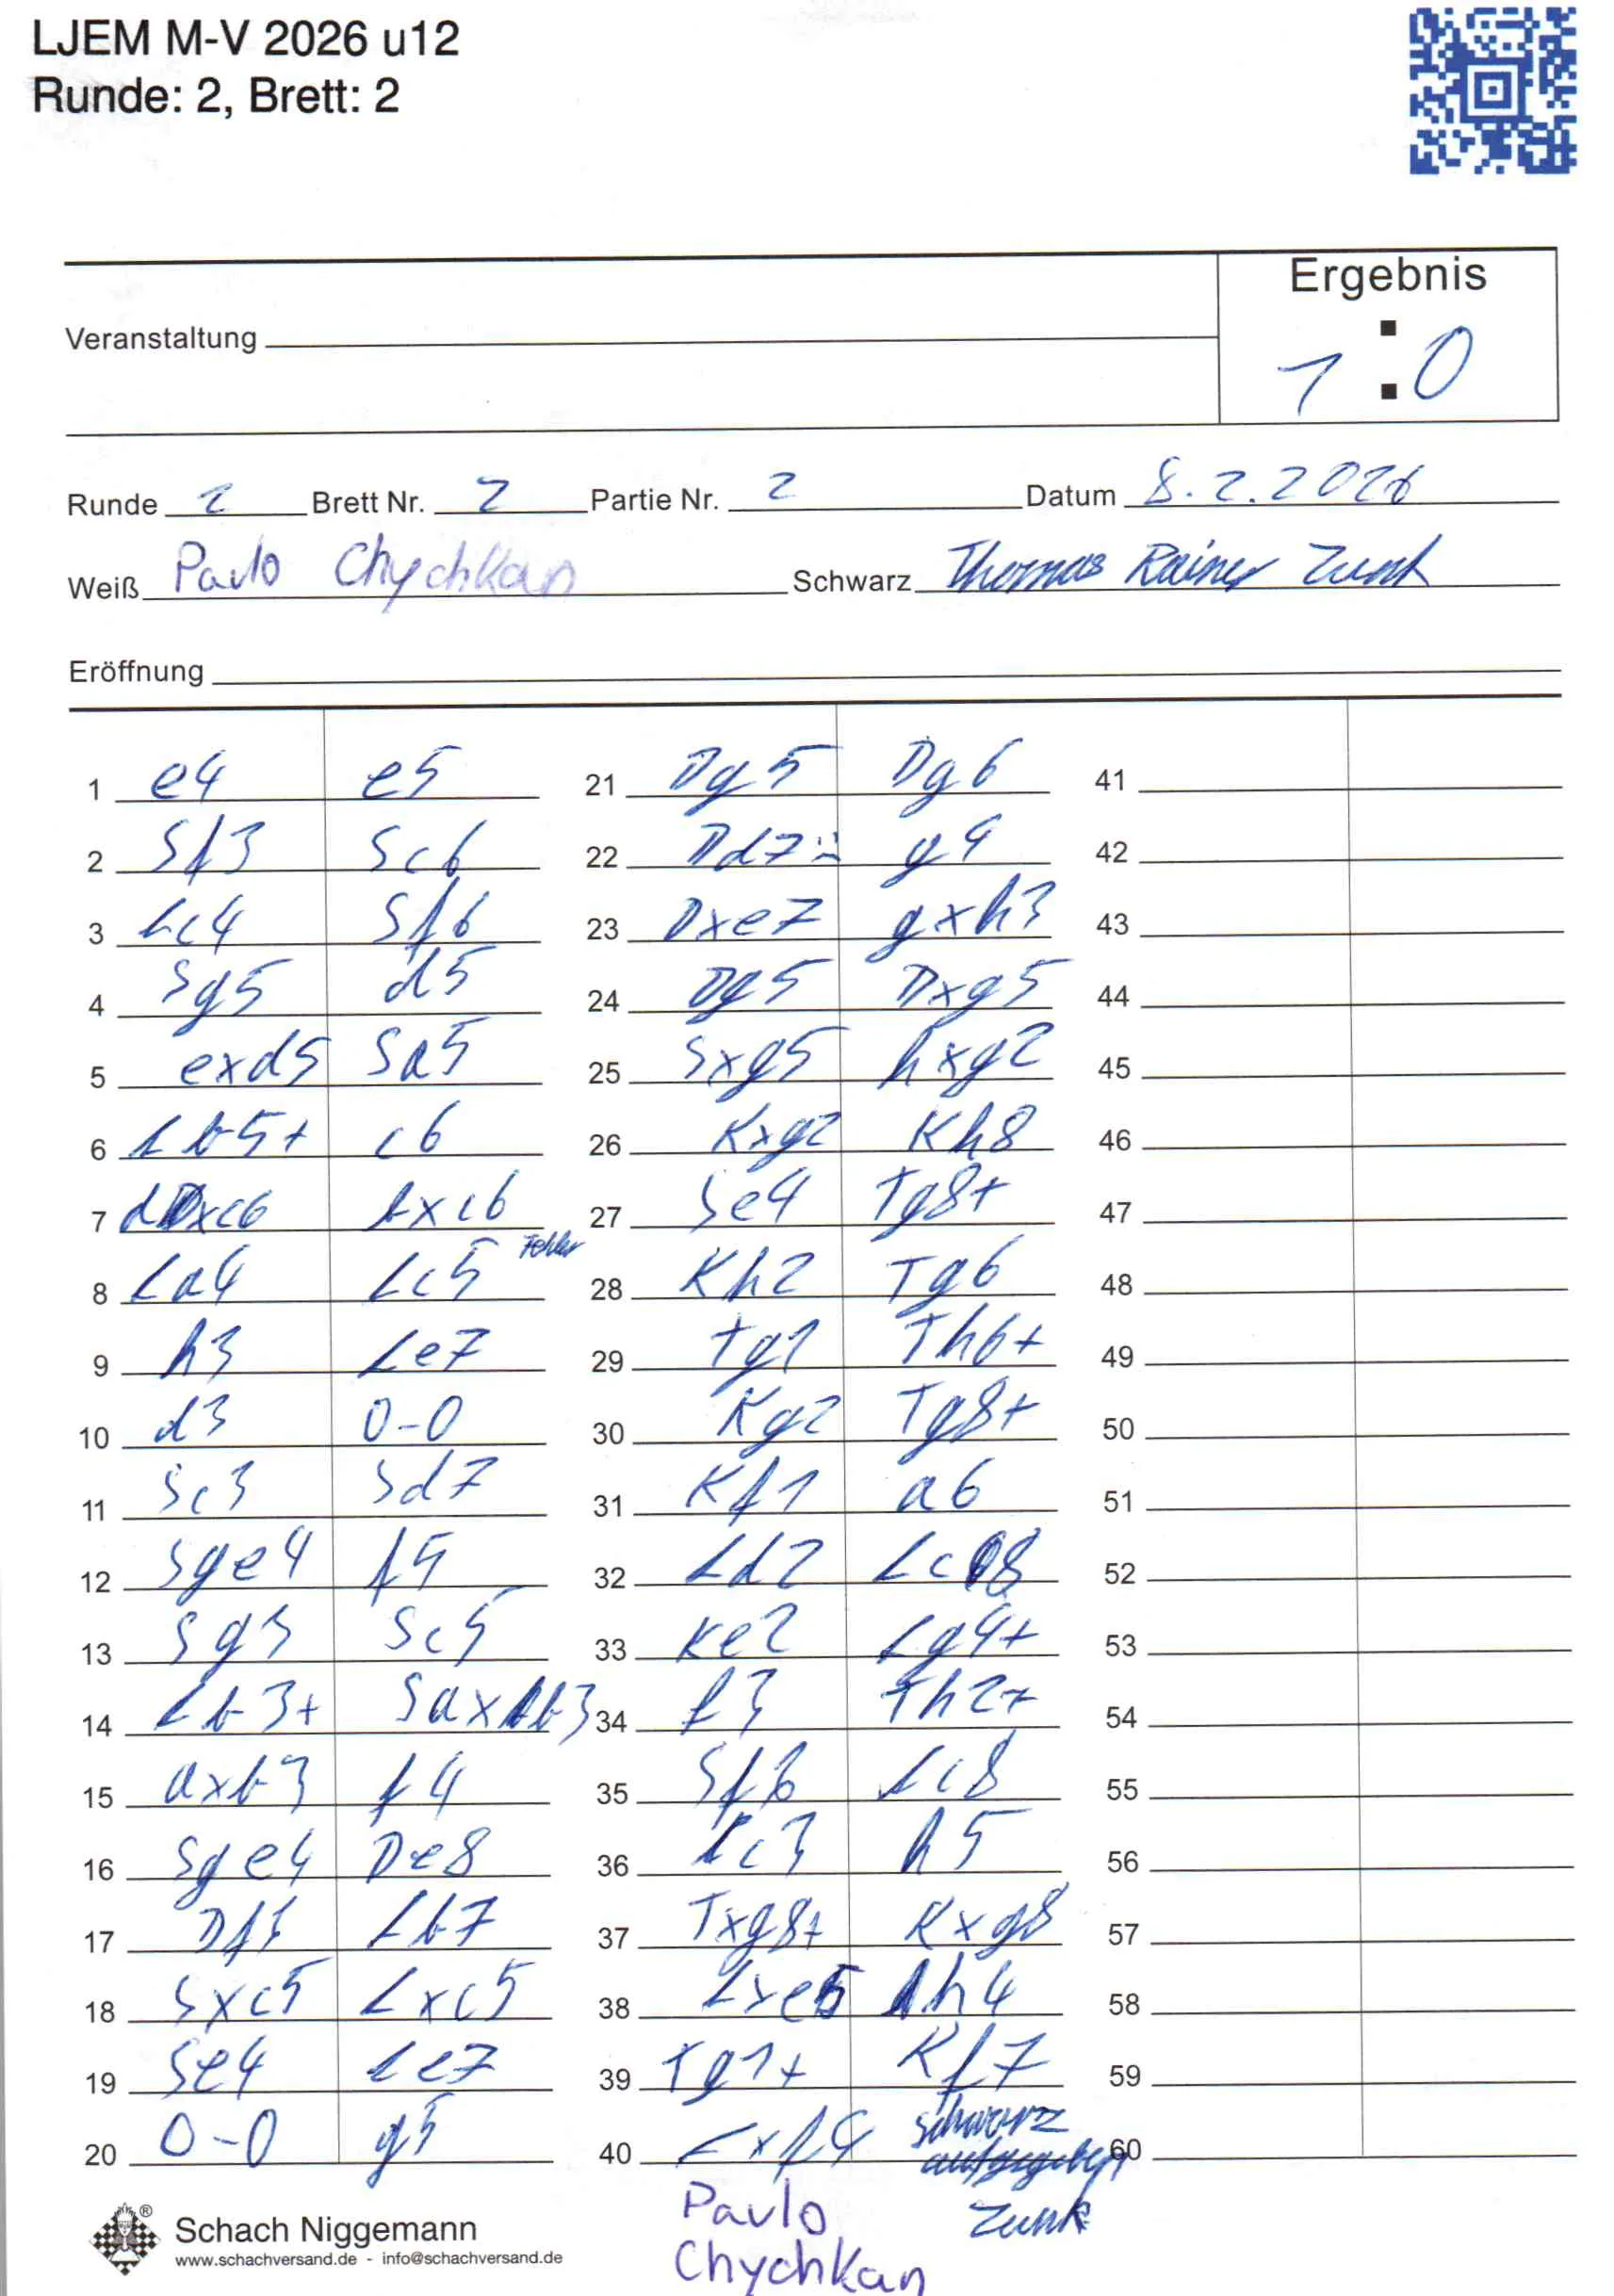 LJEM M-V 2026 u12
Runde: 2, Brett: 2
Ergebnis
Veranstaltung
1 : 0
Runde 2 Brett Nr. 2 Partie Nr. 2 Datum 8.2.2026
Weiß Pavlo Chychkan Schwarz Thomas Rainer Zunk
Eröffnung
1 e4 e5
2 Sf3 Sc6
3 Lc4 Sf6
4 Sg5 d5
5 exd5 Sa5
6 Lb5+ c6
7 dxc6 bxc6
8 La4 Lc5 Fehler
9 h3 Le7
10 d3 0-0
11 Sc3 Sd7
12 Sge4 f5
13 Sg3 Sc5
14 Lb3+ Saxb3
15 axb3 f4
16 Sge4 De8
17 Df3 Lb7
18 Sxc5 Lxc5
19 Se4 Le7
20 0-0 g5
21 Dg5 Dg6
22 Dd7 g4
23 Dxe7 gxh3
24 Dg5 Dxg5
25 Sxg5 hxg2
26 Kxg2 Kh8
27 Se4 Tg8+
28 Kh2 Tg6
29 Tg1 Th6+
30 Kg2 Tg8+
31 Kf1 a6
32 Ld2 Lc8
33 Ke2 Lg4+
34 f3 Th2+
35 Sf6 Lc8
36 Lc3 h5
37 Txg8+ Kxg8
38 Lxe5 h4
39 Tg1+ Kf7
40 Lxf4 schwarz
aufgegeben
41
42
43
44
45
46
47
48
49
50
51
52
53
54
55
56
57
58
59
60
Schach Niggemann
www.schachversand.de - info@schachversand.de
Pavlo
Chychkan
Zunk